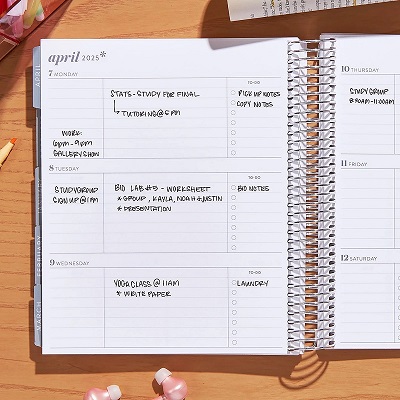 april 2025*
7 MONDAY
TO-DO
STATS - STUDY FOR FINAL
TUTORING @ 5 PM
WORK:
6pm - 9pm
GALLERY SHOW
PICK UP NOTES
COPY NOTES
8 TUESDAY
TO-DO
STUDY GROUP
SIGN UP @ 1PM
BIO LAB #3 - WORKSHEET
* GROUP, KAYLA, NOAH & JUSTIN
* PRESENTATION
BIO NOTES
9 WEDNESDAY
TO-DO
YOGA CLASS @ 11AM
* WRITE PAPER
LAUNDRY
10 THURSDAY
STUDY GROUP
11 FRIDAY
12 SATURDAY
APRIL
FEBRUARY
MARCH